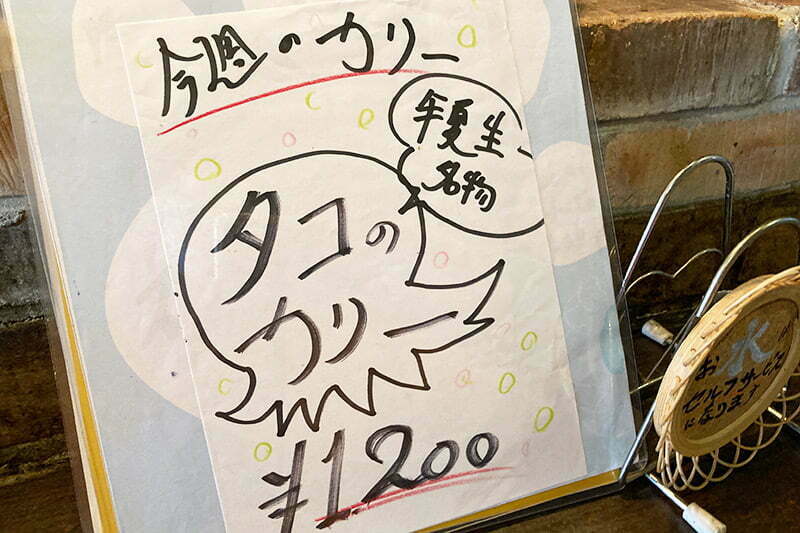 今週のカリー
半夏生
名物
タコの
カリー
¥1,200
お水
セルフサービス
になります